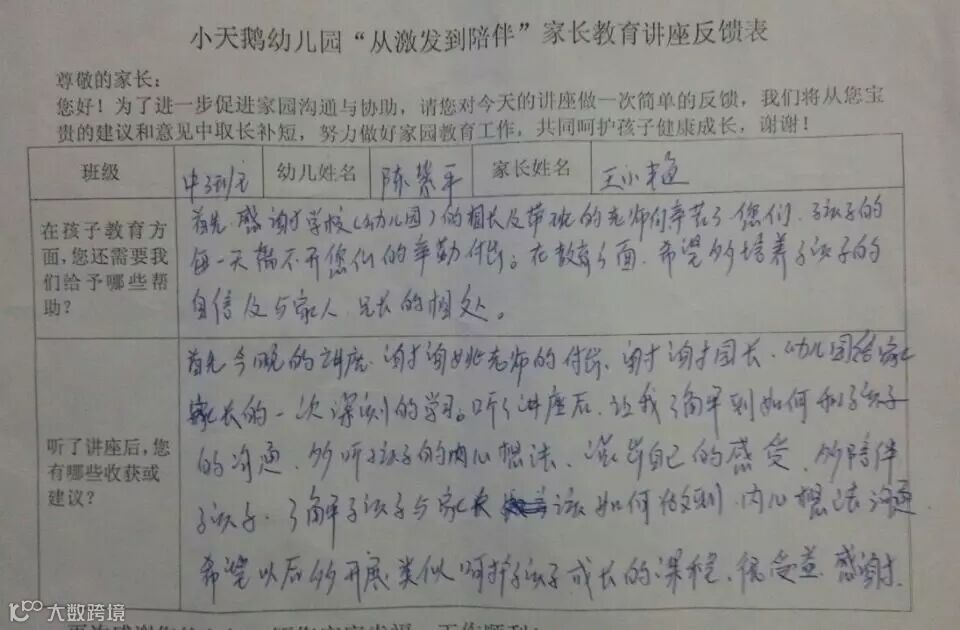 小天鹅幼儿园“从激发到陪伴”家长教育讲座反馈表
尊敬的家长：
您好！为了进一步促进家园沟通与协助，请您对今天的讲座做一次简单的反馈，我们将从您宝
贵的建议和意见中取长补短，努力做好家园教育工作，共同呵护孩子健康成长，谢谢！
班级 幼儿姓名 陈 平 家长姓名 王小
在孩子教育方
面，您还需要我
们给予哪些帮
助？
首先，感谢学校（幼儿园）的园长及带班的老师们辛苦了您们，孩子的
每一天离不开您们的辛勤付出。在教育方面，希望多培养孩子的
自信及与家人、兄长的相处。
听了讲座后，您
有哪些收获或
建议？
首先今晚的讲座，谢谢 老师的付出，谢谢园长，幼儿园给家长
家长的一次深刻的学习。听了讲座后，让我了解到如何和孩子
的沟通，多听孩子的内心想法、 自己的感受，多陪伴
孩子，了解孩子与家长 该如何做到，内心想法沟通
希望以后多开展类似呵护孩子成长的课程，很受益，感谢。
大数跨境